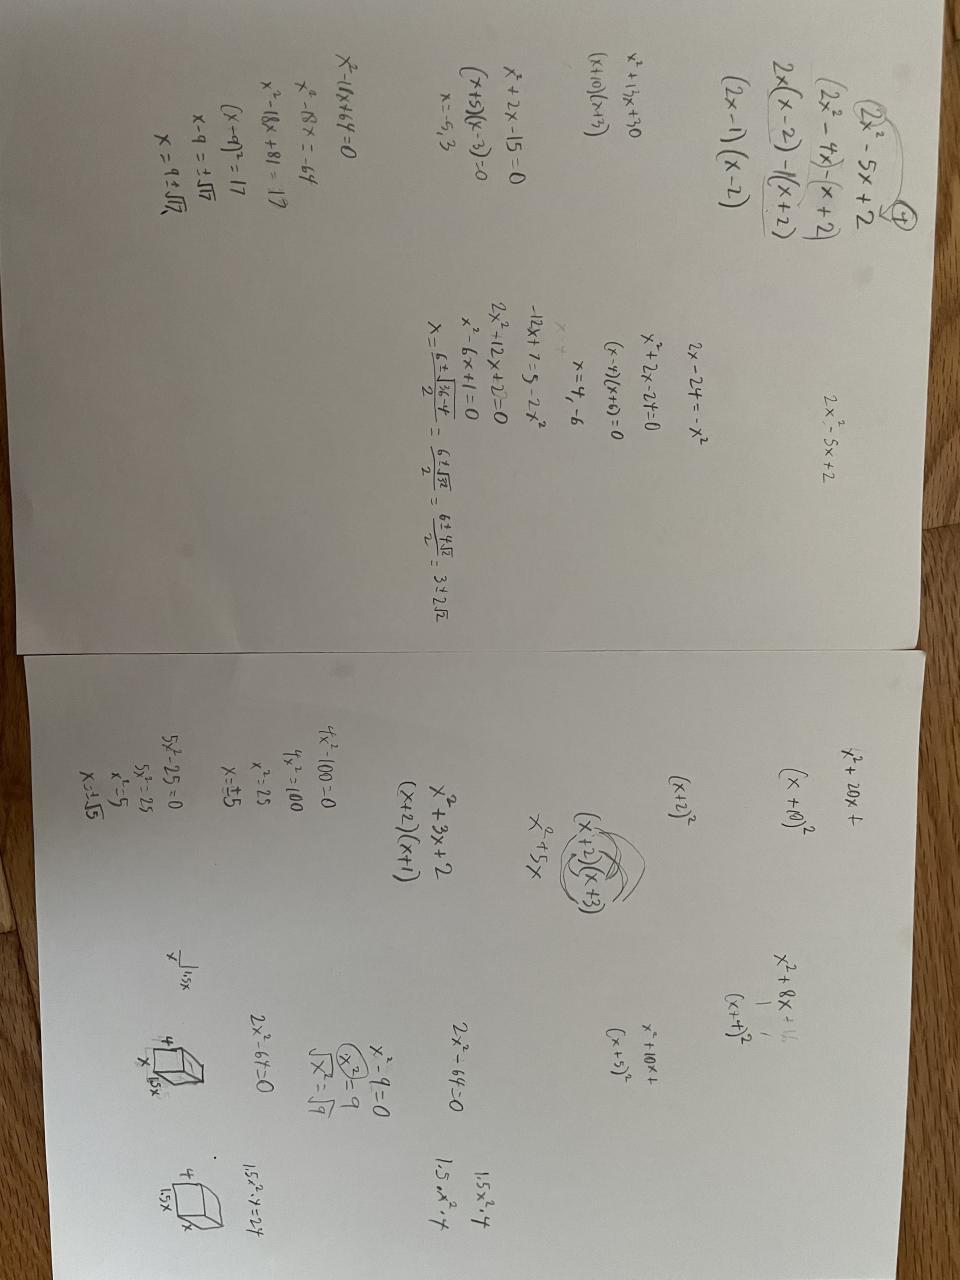 2x² - 5x + 2
(2x² - 4x) - (x + 2)
2x(x - 2) - 1(x + 2)
(2x - 1)(x - 2)
x² + 13x + 30
(x+10)(x+3)
x² + 2x - 15 = 0
(x+5)(x-3) = 0
x = -5, 3
x² - 18x + 64 = 0
x² - 18x = -64
x² - 18x + 81 = 17
(x-9)² = 17
x - 9 = ±√17
x = 9 ± √17
2x² - 5x + 2
2x - 24 = -x²
x² + 2x - 24 = 0
(x-4)(x+6) = 0
x = 4, -6
-12x + 7 = 5 - 2x²
2x² + 12x + 2 = 0
x² - 6x + 1 = 0
x = (6 ± √(36-4))/2 = (6 ± √32)/2 = (6 ± 4√2)/2 = 3 ± 2√2
x² + 20x +
(x + 10)²
(x+2)²
(x+2)(x+3)
x² + 5x
x² + 3x + 2
(x+2)(x+1)
4x² - 100 = 0
4x² = 100
x² = 25
x = ±5
5x² - 25 = 0
5x² = 25
x² = 5
x = ±√5
x² + 8x + 16
(x+4)²
x² + 10x +
(x+5)²
2x² - 64 = 0
x² - 9 = 0
x² = 9
√x² = √9
2x² - 64 = 0
1.5x
x
4
x
1.5x
1.5x² · 4
1.5 · x² · 4
1.5x² · 4 = 24
4
1.5x
x